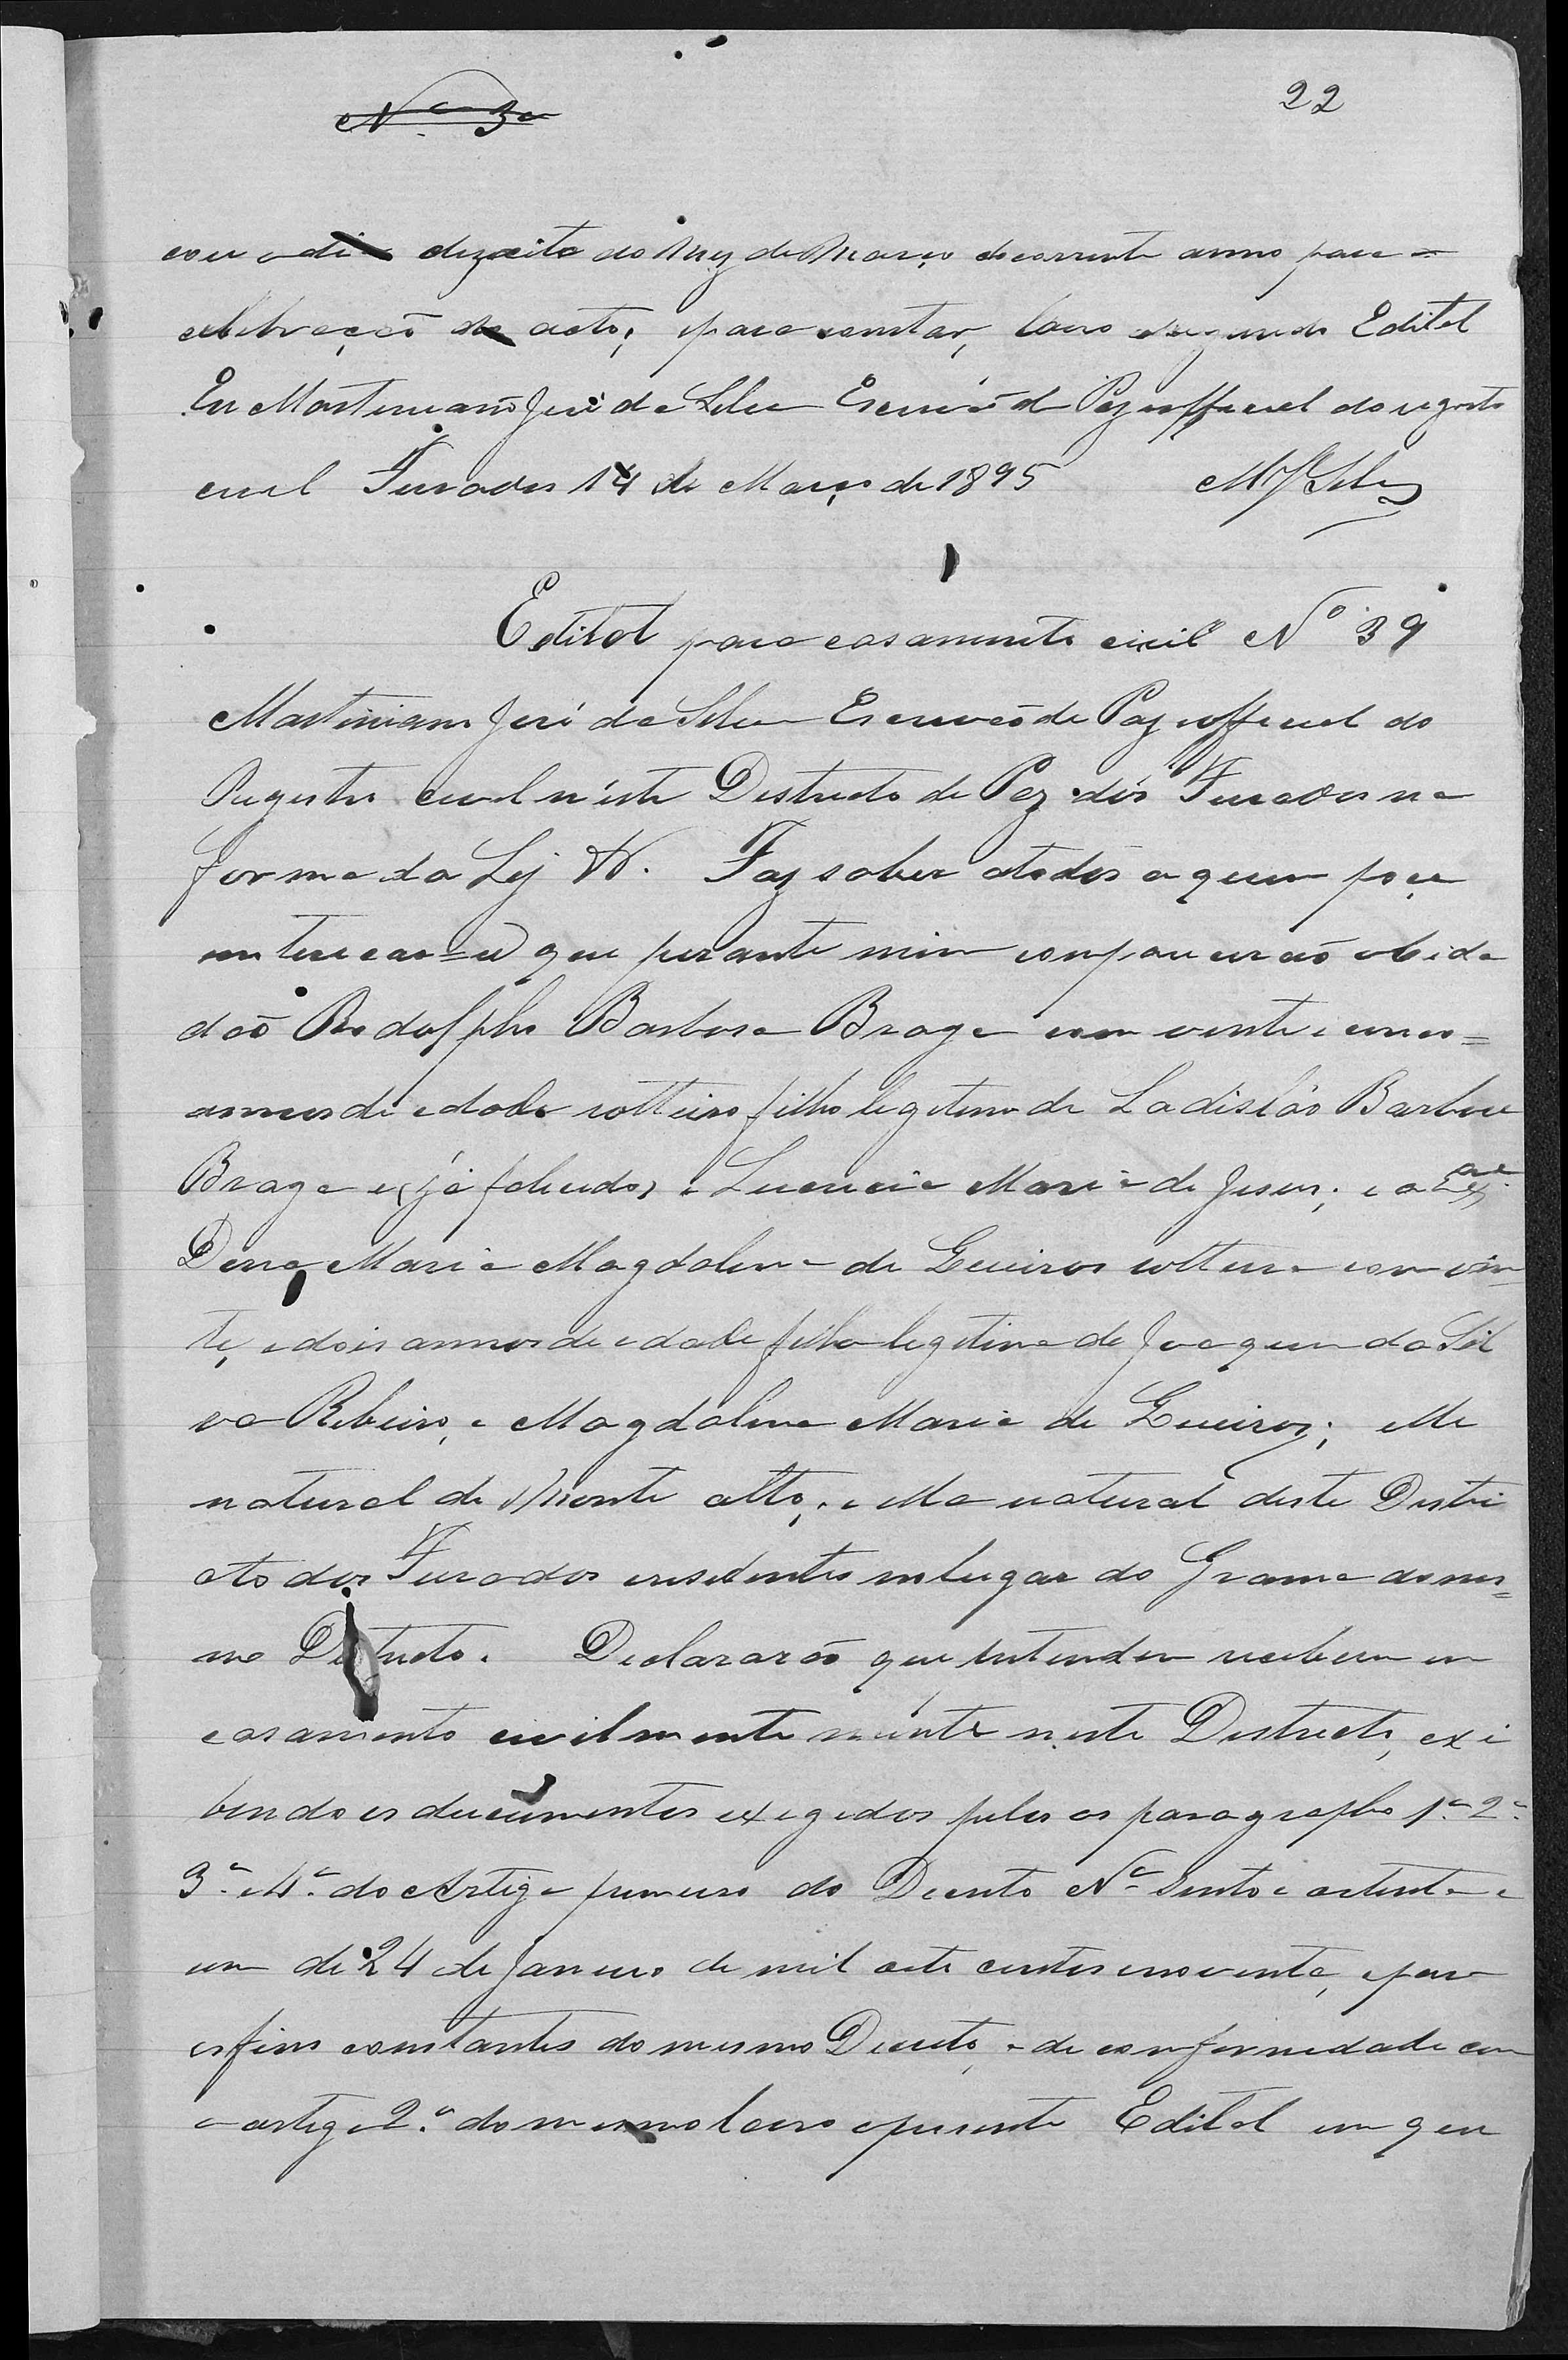 22
cou o dia dezoito do Mez de Março do corrente anno para a
celebração do acto; para constar, lavro o segundo Edital
Eu Martiniano José da Silva Escrivão de Paz e official do registo
civil Furados 14 de Março de 1895 MJSilva
Edital para casamento civil Nº 39
Martiniano José da Silva Escrivaõ de Paz e official do
Registro civel n'este Destricto de Paz dos Furados na
forma da Lej &. Faz saber atodos a quem poça
enterecar=se que perante mim comparecraõ o cida
daõ Rodolpho Barbosa Braga com vinte e cinco=
annos de edade solteiro filho legitimo de Ladislào Barbosa
Braga e, já falecido, e Lucrecia Maria de Jesus; e a Exª
Dona Maria Magdalena de Queiros solteira com vin=
te, e dois annos de edade filha legitima de Joaquim da Sil
va Ribeiro, e Magdalena Maria de Queiroz; elle
natural de Monte alto, e ella natural deste Destri
cto dos Furados e residentes no lugar do Grama do mes=
mo Destricto. Declararaõ que entendem receberem em
casamento civilmente neste Destricto, exi
bindo os documentos exegidos pelos os paragrapho 1º 2º
3º e 4º do Artigo primeiro do Decreto Nº Sento e oitenta e
um de 24 de Janeiro de mil oite centos e noventa, e para
os fins constantes do mesmo Decreto, e de conformedade com
o artigo 2º do mesmo lavro o presente Edital em que